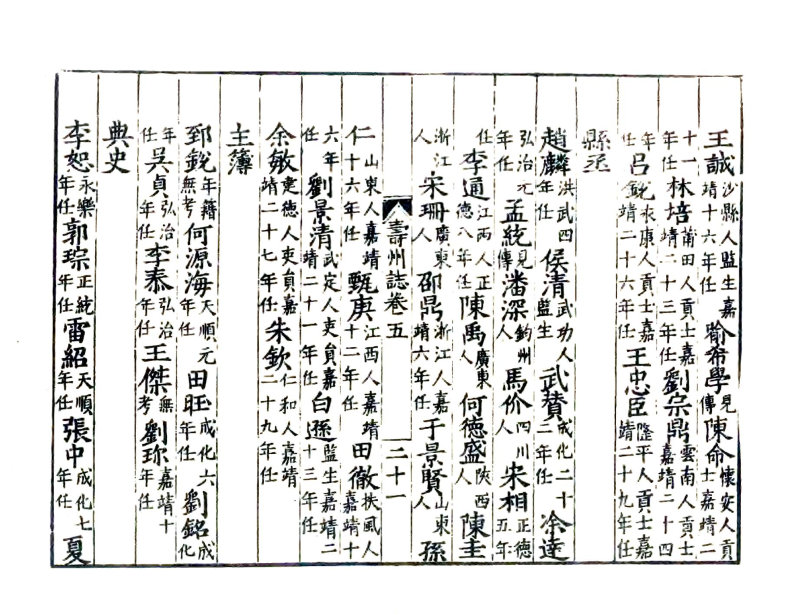 王誠沙縣人監生嘉靖十六年任喻希學見傳陳命懷安人貢士嘉靖二
十一年任林培莆田人貢士嘉靖二十三年任劉宗鼎雲南人貢士嘉靖二十四
年任呂銳永康人貢士嘉靖二十六年任王忠臣隆平人貢士嘉靖二十九年任
縣丞
趙麟洪武四年任侯清武功人監生武贊成化二十二年任凃達
弘治元年任孟統見傳潘深鈞州人馬价四川人宋相正德五年
任李通江西人正德八年任陳禹廣東人何德盛陝西人陳圭
浙江人宋珊廣東人邵鼎浙江人嘉靖六年任于景賢山東人孫
壽州誌卷五 二十一
仁山東人嘉靖十六年任甄庚江西人嘉靖十二年任田徹扶風人嘉靖十
六年任劉景清武定人吏員嘉靖二十一年任白遜監生嘉靖二十三年任
余敏建德人吏員嘉靖二十七年任朱欽仁和人嘉靖二十九年任
主簿
郅銳年籍無考何源海天順元年任田旺成化六年任劉銘成化
年任吳貞弘治年任李泰弘治年任王傑無考劉珎嘉靖十年任
典史
李恕永樂年任郭琮正統年任雷紹天順年任張中成化七年任夏